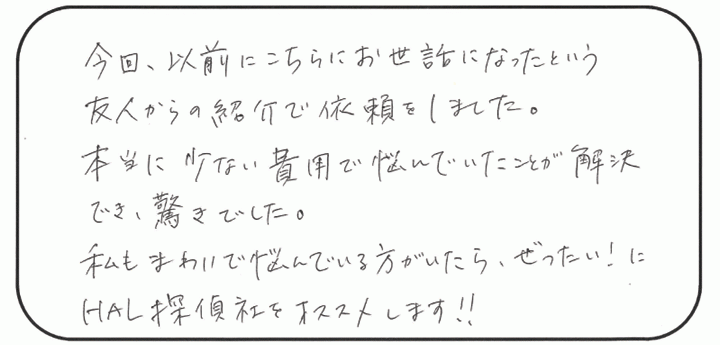 今回、以前にこちらにお世話になったという
友人からの紹介で依頼をしました。
本当に少ない費用で悩んでいたことが解決
でき、驚きでした。
私もまわりで悩んでいる方がいたら、ぜったい!に
HAL探偵社をオススメします!!